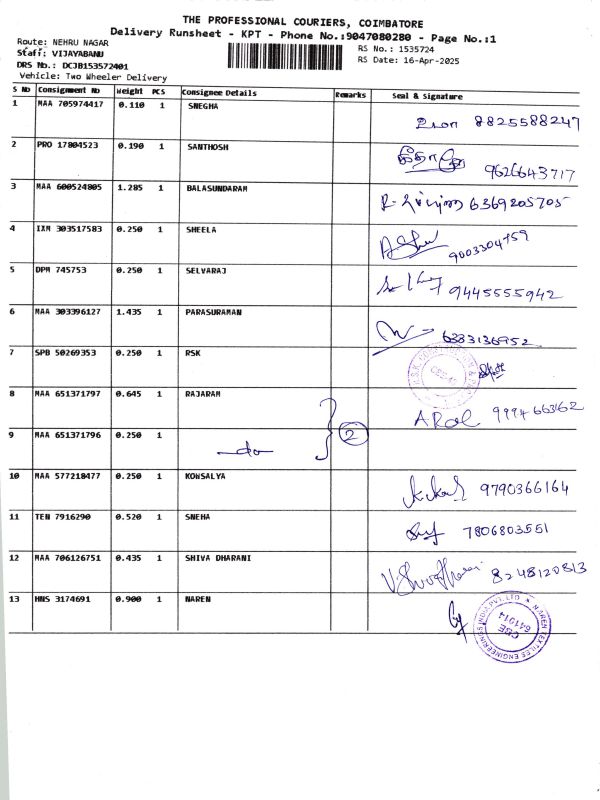 THE PROFESSIONAL COURIERS, COIMBATORE
Delivery Runsheet - KPT - Phone No.:9047080280 - Page No.:1
Route: NEHRU NAGAR
Staff: VIJAYABANU
DRS No.: DCJB153572401
Vehicle: Two Wheeler Delivery
RS No.: 1535724
RS Date: 16-Apr-2025
S No Consignment No Weight PCS Consignee Details Remarks Seal & Signature
1 MAA 705974417 0.110 1 SNEGHA 8825588247
2 PRO 17804523 0.190 1 SANTHOSH 9626643717
3 MAA 600524805 1.285 1 BALASUNDARAM 6369205705
4 IXM 303517583 0.250 1 SHEELA 9003304759
5 DPM 745753 0.250 1 SELVARAJ 9445555942
6 MAA 303396127 1.435 1 PARASURAMAN 6383136952
7 SPB 50269353 0.250 1 RSK
8 MAA 651371797 0.645 1 RAJARAM 9994663162
9 MAA 651371796 0.250 1 —do— 2
10 MAA 577218477 0.250 1 KONSALYA 9790366164
11 TEN 7916290 0.520 1 SNEHA 7806803551
12 MAA 706126751 0.435 1 SHIVA DHARANI 8248120813
13 HNS 3174691 0.900 1 NAREN
NAREN TEXTILES ENGINEERINGS INDIA PVT. LTD
CBE
641014